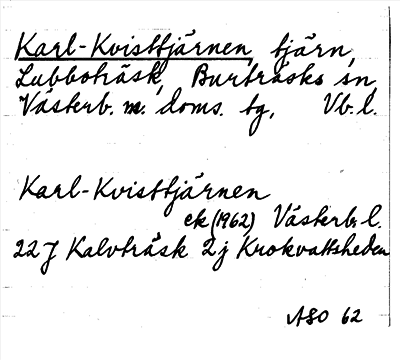 Karl-Kvisttjärnen, tjärn,
Lubboträsk, Burträsks sn,
Västerb. m. doms. tg, Vb. l.
Karl-Kvisttjärnen
ek (1962) Västerb. l.
22J Kalvträsk 2j Krokvattsheden
ASO 62